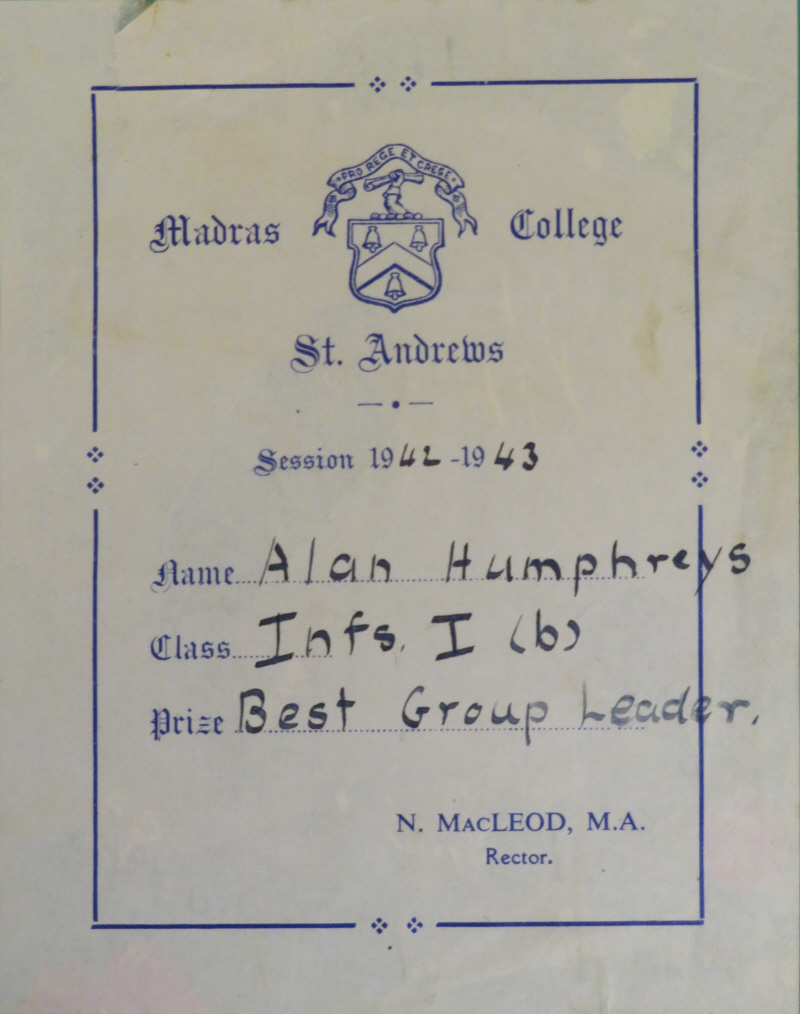 PRO REGE ET GREGE
Madras College
St. Andrews
Session 1942-1943
Name Alan Humphreys
Class Infs. I (b)
Prize Best Group Leader.
N. MACLEOD, M.A.
Rector.